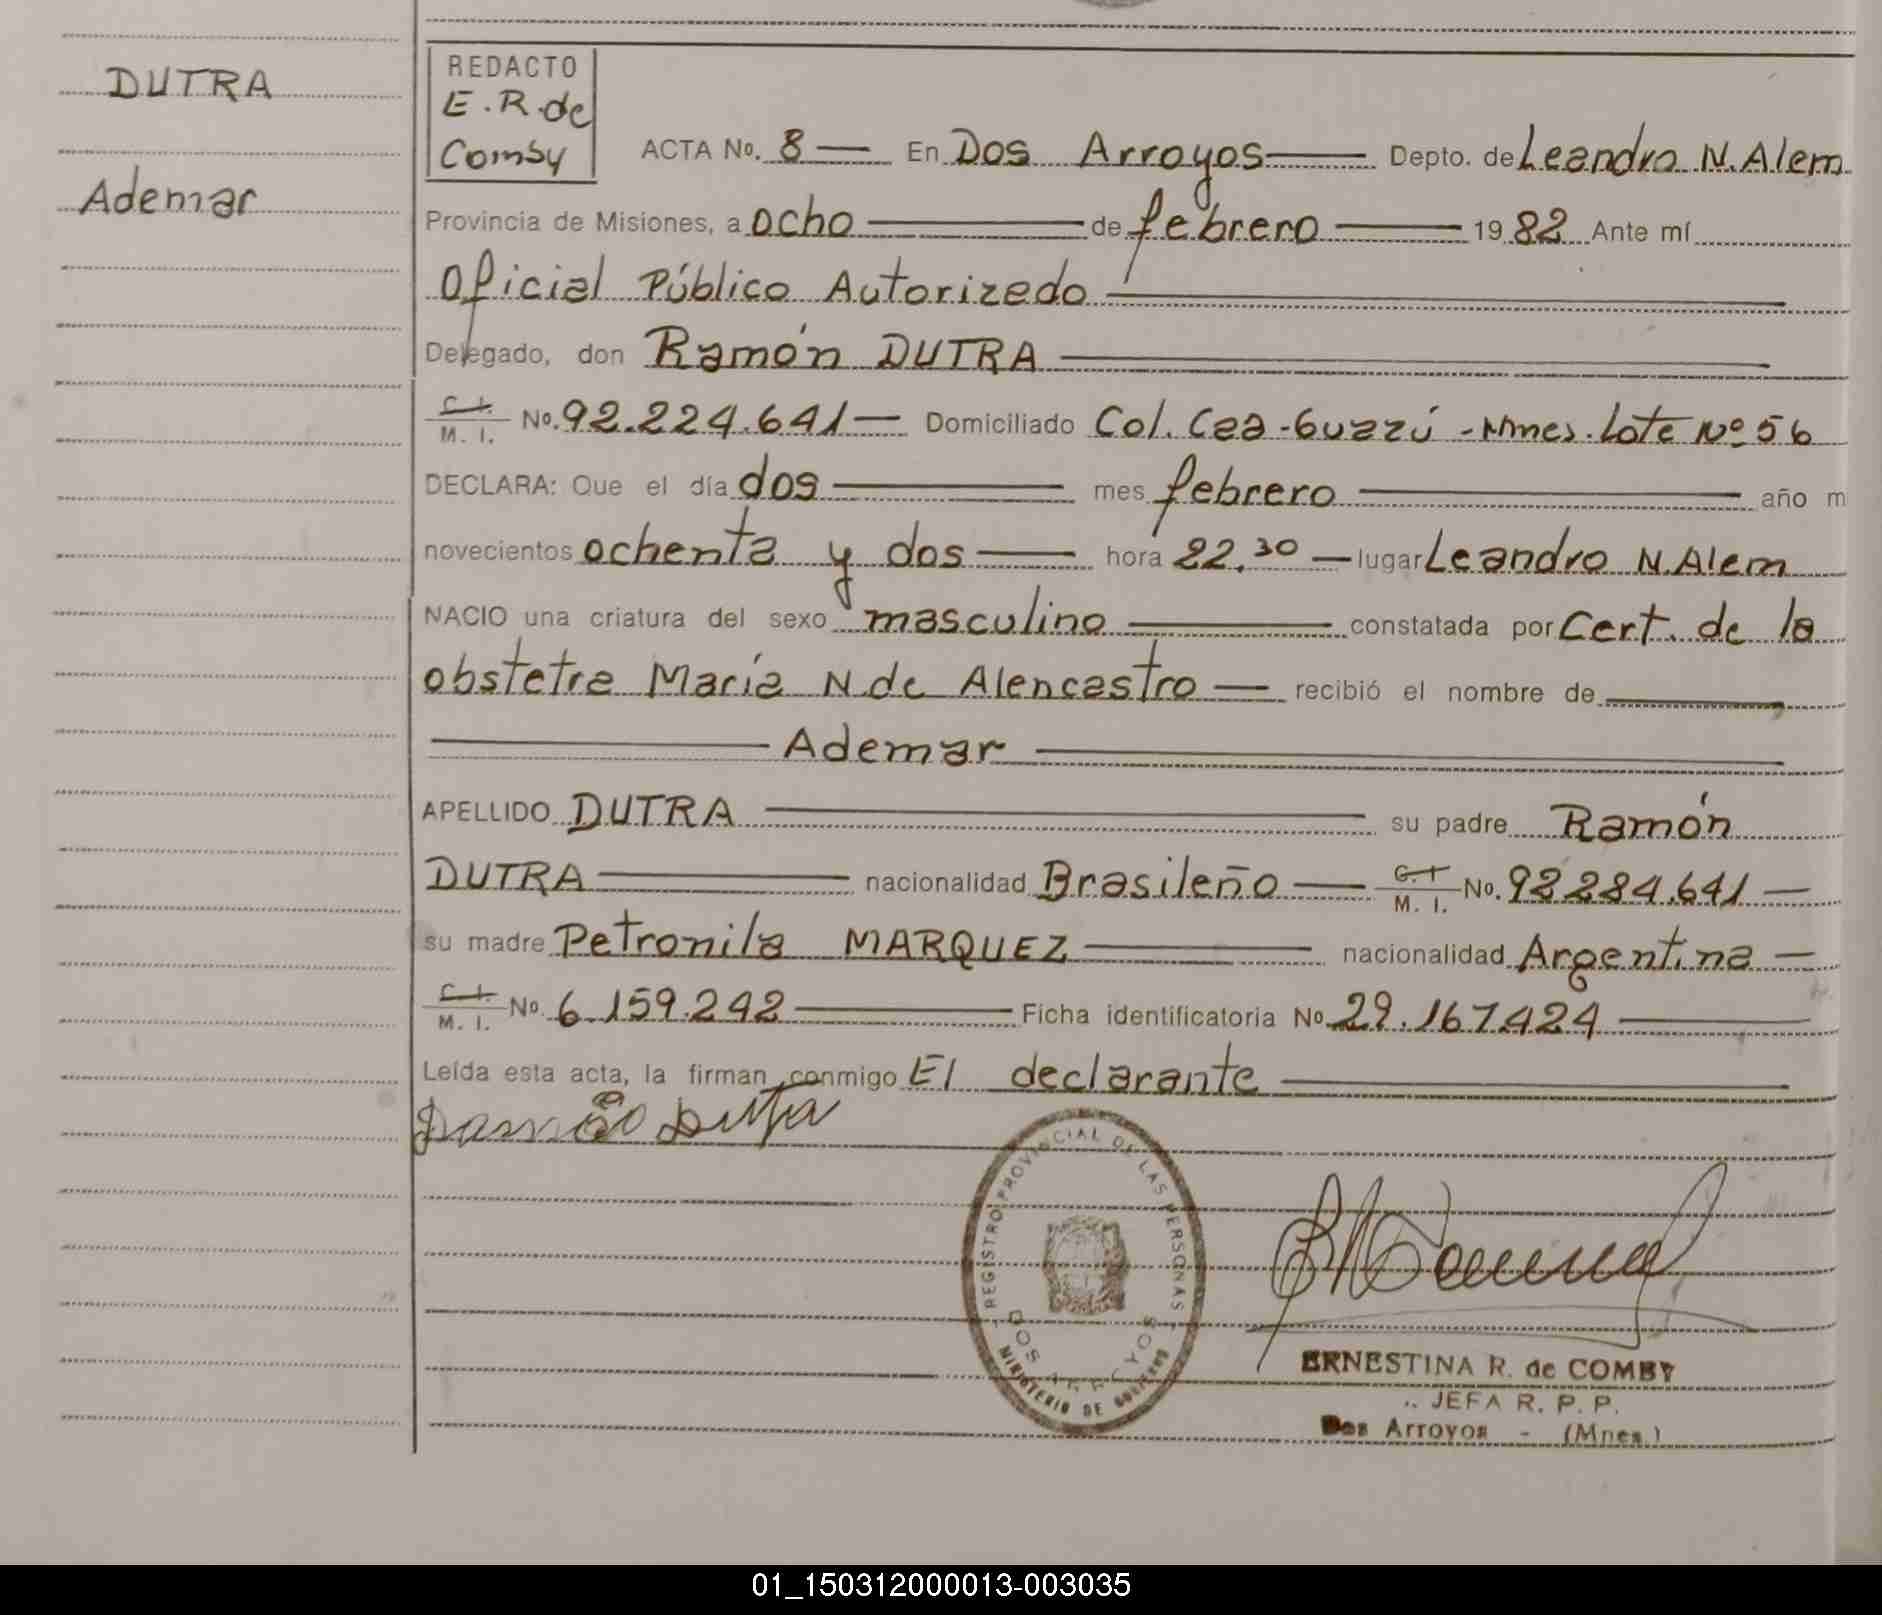 DUTRA
Ademar
REDACTO
E.R.de
Comby
ACTA No. 8 — En Dos Arroyos — Depto. de Leandro N. Alem
Provincia de Misiones, a ocho — de febrero — 1982 Ante mí
Oficial Público Autorizado —
Delegado, don Ramón DUTRA —
C. I. M. I. No. 92.224.641 — Domiciliado Col. Caa-Guazú - Mnes. Lote Nº 56
DECLARA: Que el día dos — mes febrero — año m
novecientos ochenta y dos — hora 22.30 — lugar Leandro N. Alem
NACIO una criatura del sexo masculino — constatada por Cert. de la
obstetra María N. de Alencastro — recibió el nombre de —
— Ademar —
APELLIDO DUTRA — su padre Ramón
DUTRA — nacionalidad Brasileño — C. I. M. I. No. 92 224.641 —
su madre Petronila MARQUEZ — nacionalidad Argentina —
C. I. M. I. No. 6.159.242 — Ficha identificatoria No. 29.167.424 —
Leída esta acta, la firman conmigo El declarante —
REGISTRO PROVINCIAL DE LAS PERSONAS
DOS ARROYOS
MINISTERIO DE GOBIERNO
ERNESTINA R. de COMBY
JEFA R. P. P.
Dos Arroyos - (Mnes.)
01_150312000013-003035